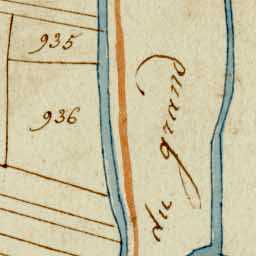 935
936
du grand